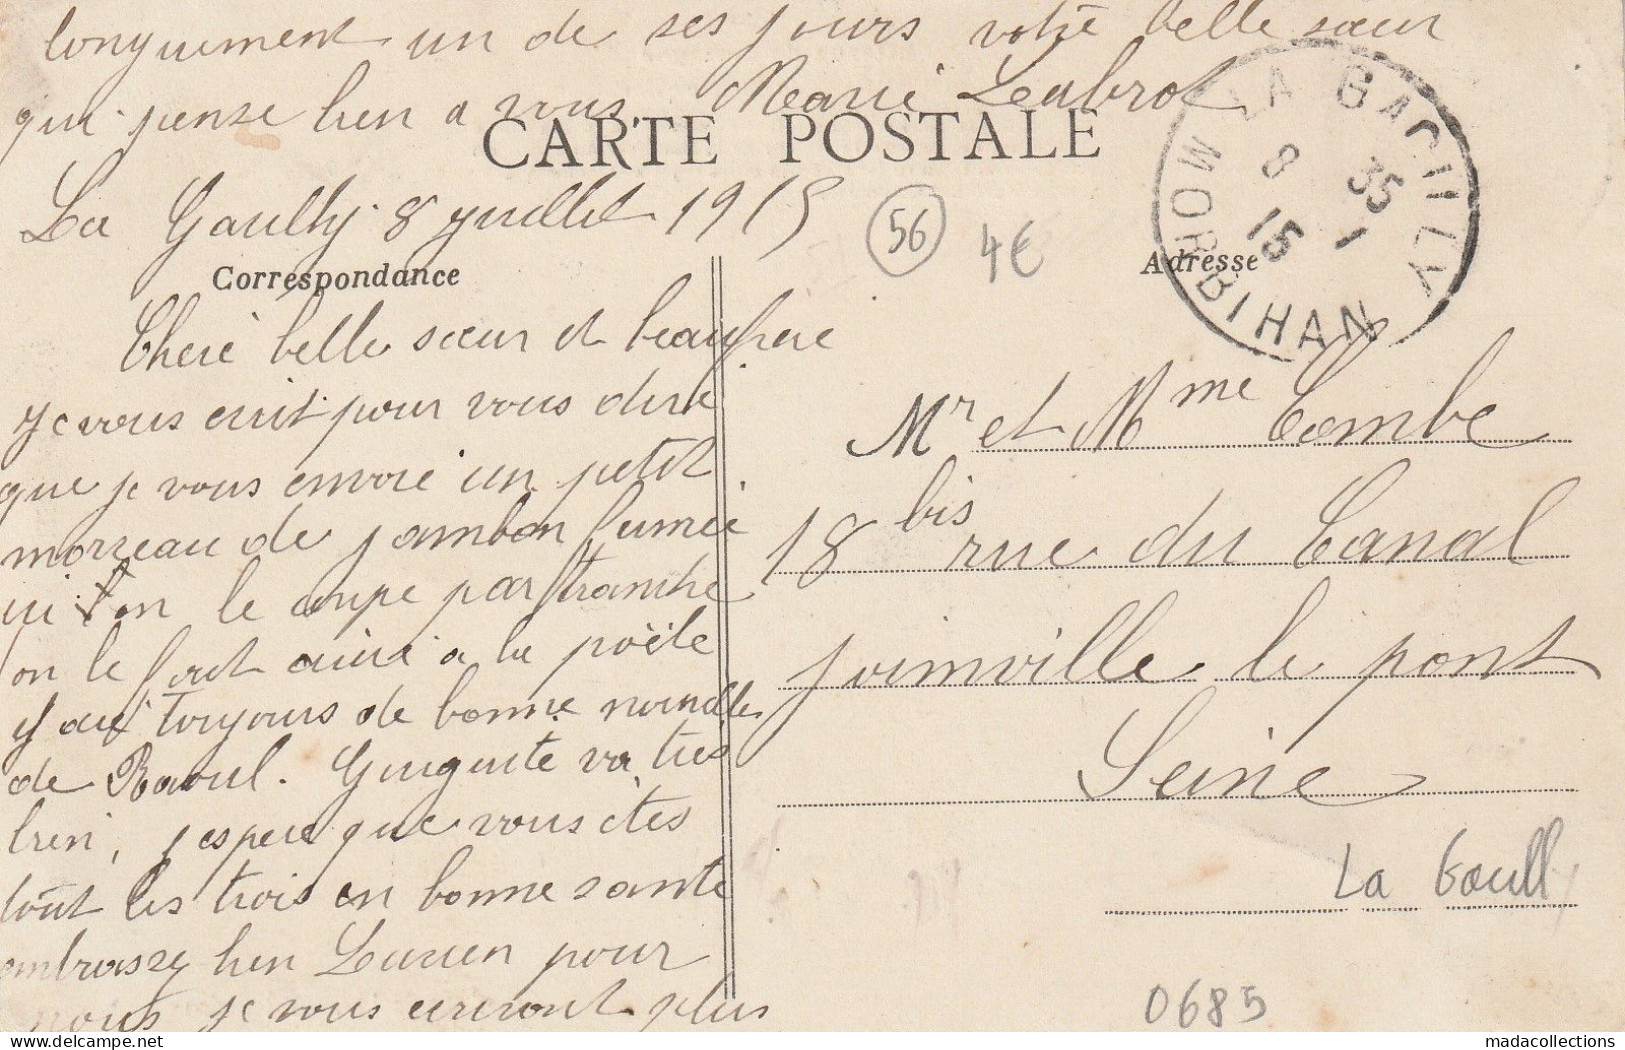 longuement un de ses jours votre belle sœur
qui pense bien a vous Marie
CARTE POSTALE
La Gacilly 8 juillet 1915
56
4€
LA GACILLY
8 35
15 1
MORBIHAN
Correspondance
Adresse
Cheré belle sœur et beaufrere
je vous ecrit pour vous diré
que je vous envoie un petit
morzeau de jambon fumée
ici l'on le coupe par tranche
on le fait ainsi a la poële
j'ai toujours de bonne nouvelles
de Raoul. va tres
bien, j'espere que vous êtes
tout les trois en bonne sante
embrassez bien Lucien pour
nous je vous ecriront plus
Mr et Mme Combe
18 bis rue du Canal
Joinville le pont
Seine
La Gacill
0685
madacollections